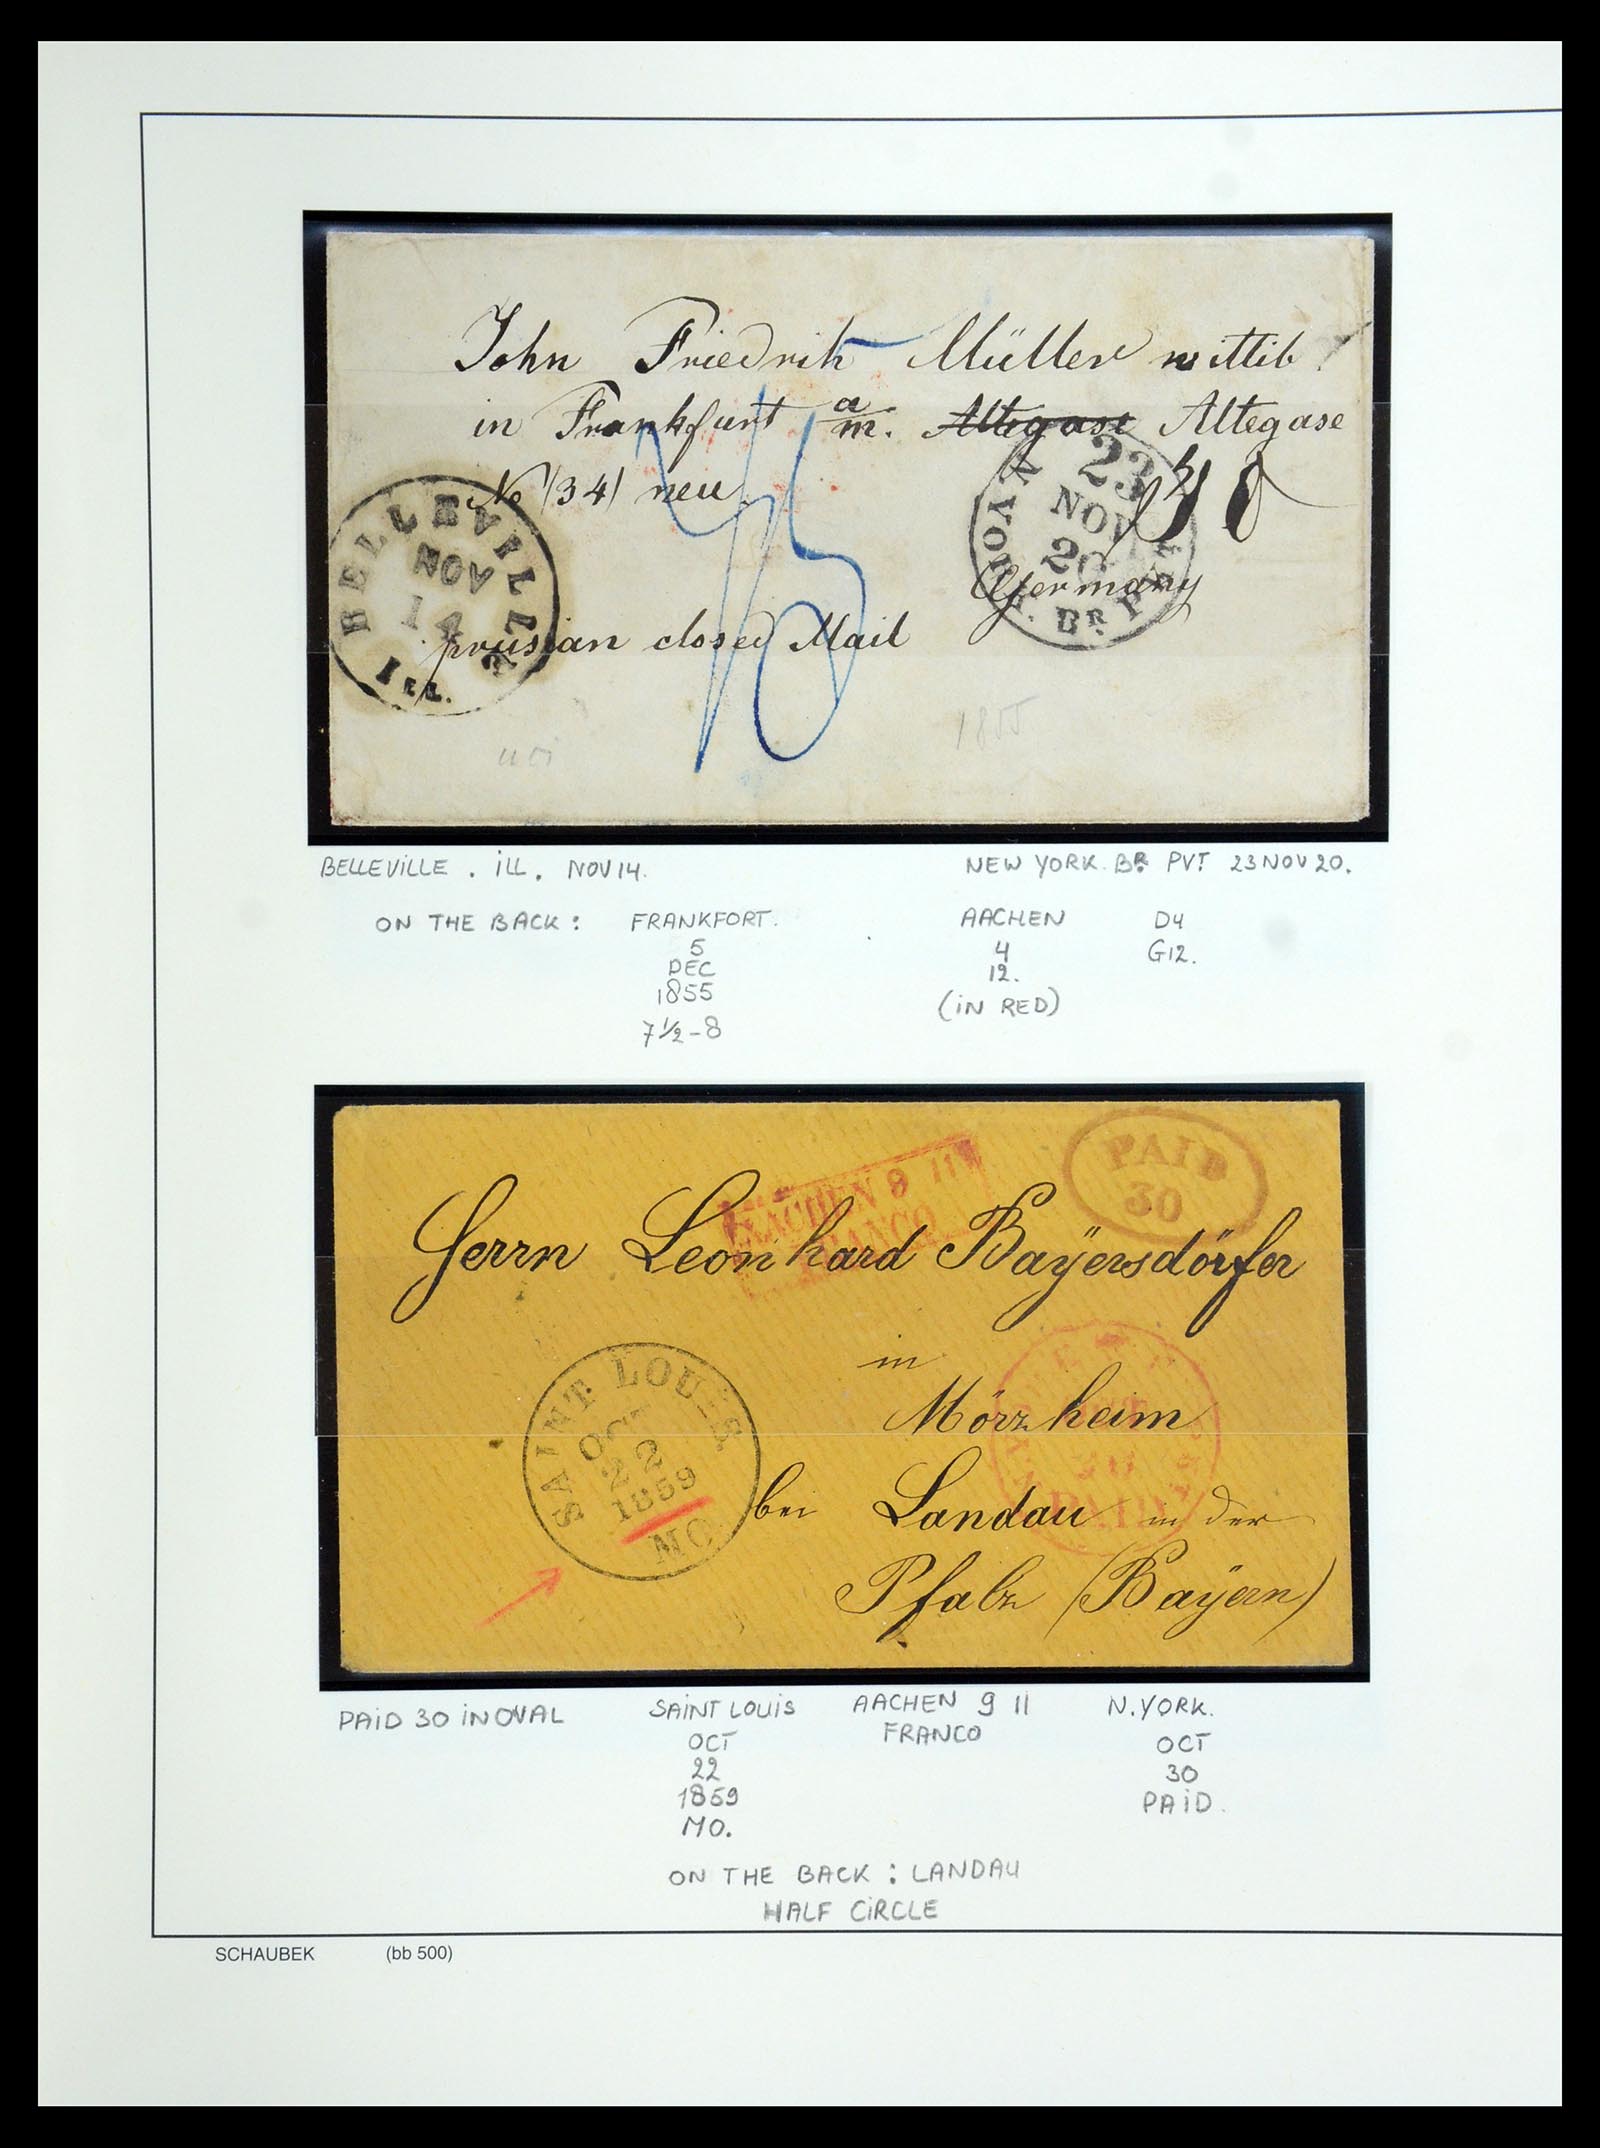 John Friedrich Müller wittib
in Frankfurt a/m. Altegase Altegase
No 134 neu
Germany
prusian closed Mail
BELLEVILLE
NOV
14
ILL.
23
NOV
20
BR. PKT
45
1855
BELLEVILLE . ILL. NOV 14.
NEW YORK. BR. PVT 23 NOV 20.
ON THE BACK : FRANKFORT. AACHEN D4
5 4 G12.
DEC 12.
1855 (IN RED)
7½-8
PAID
30
AACHEN 9 11
FRANCO
Herrn Leonhard Bayersdörfer
in
Mörzheim
bei Landau in der
Pfalz (Bayern)
SAINT LOUIS
OCT
22
1859
MO
PAID
PAID 30 IN OVAL SAINT LOUIS AACHEN 9 11 N. YORK.
OCT FRANCO OCT
22 30
1859 PAID.
MO.
ON THE BACK : LANDAU
HALF CIRCLE
SCHAUBEK (bb 500)